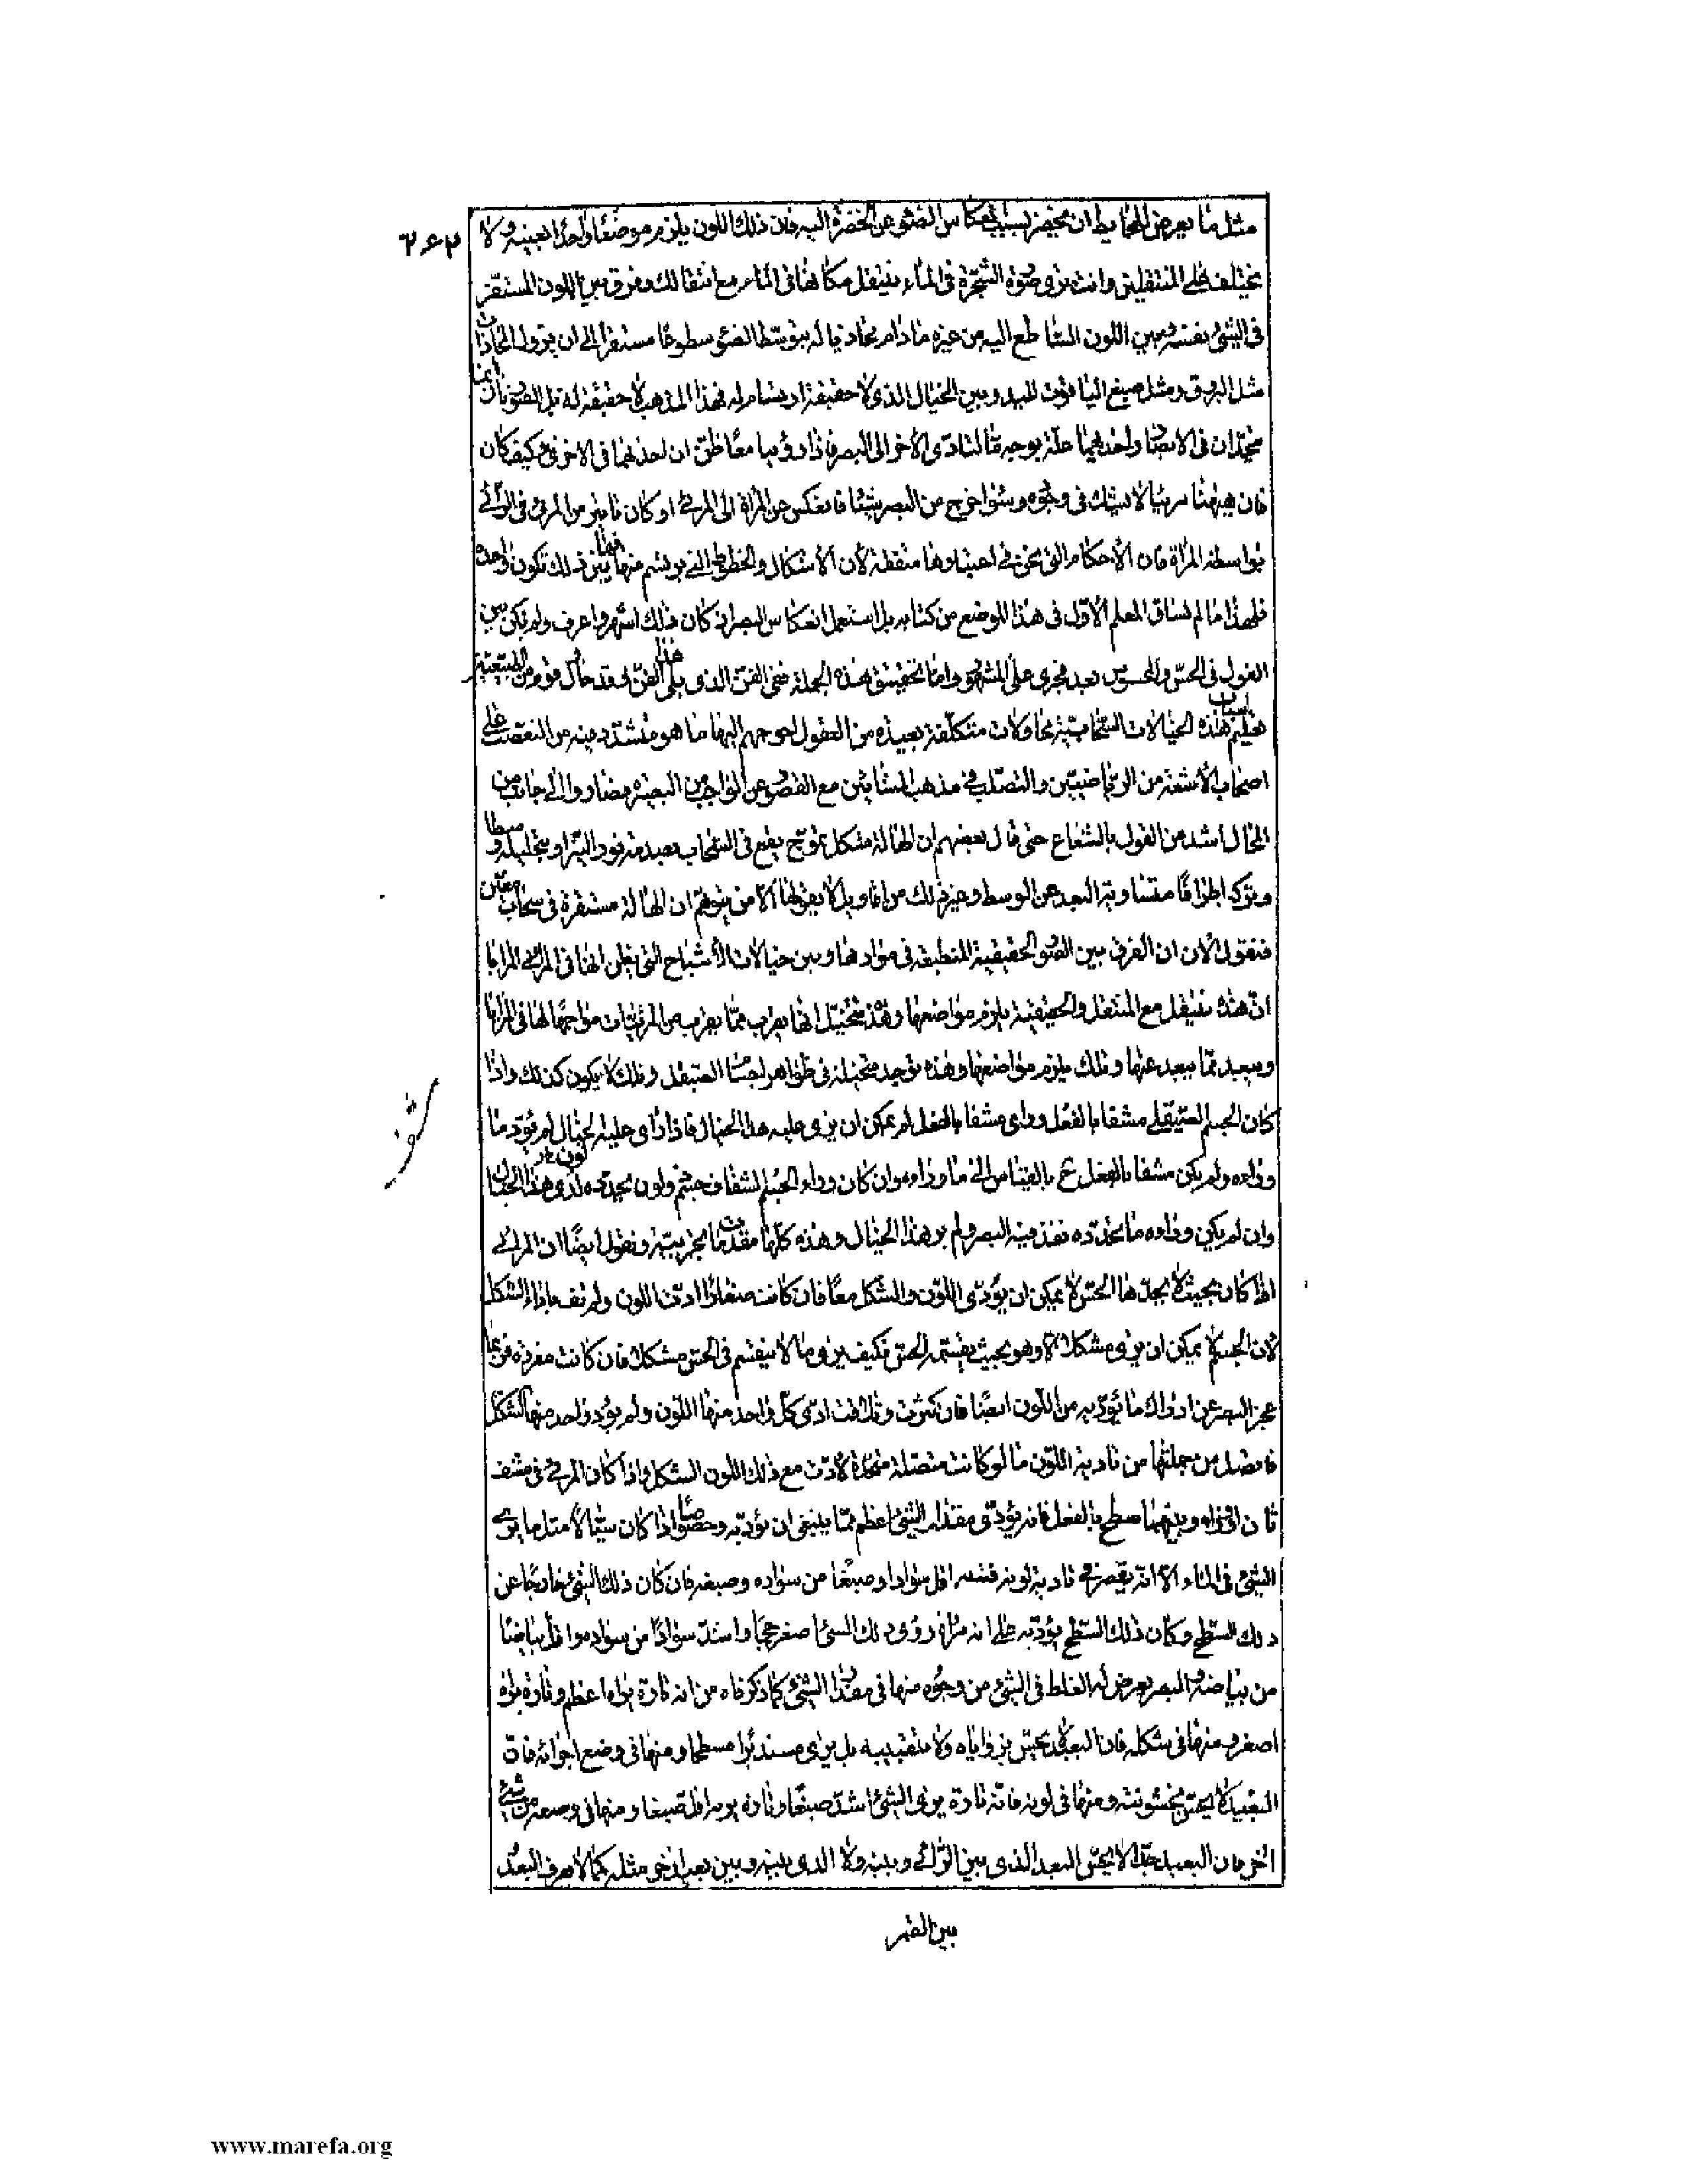 مثل ما يعرض للحايط ان يخضر بسبب انعكاس الضوء عن الخضرة اليه فان ذلك اللون يلزم موضعا واحدا بعينه ولا
٢٤٣
يختلف على المنتقلين وانت ترى صورة الشجرة فى الماء ينتقل مكانها فى الماء مع انتقالك وفرق بين اللون المستقر
فى الشئ نفسه وبين اللون الساطع اليه من غيره ما دام محاذيا له بتوسط الضوء سطوعا مستقرا الى ان يزول المحاذات
مثل البرق ومثل صبغ الياقوت لليد وبين الخيال الذى لا حقيقة له فهذا المذهب لا حقيقة له بل الصورتان
متحدان فى الابصار واحدهما علة بوجه ما لتأدى الاخر الى البصر فاذا رؤيا معا ظن ان احدهما فى الاخر كيف كان
فان هيهنا مرئيا لا يشك فى وجوده وسواء خرج من البصر شيئا فانعكس عن المراة الى المرئى او كان تاثير من المرئى فى الرائى
بواسطة المراة فان الاحكام التى نحن فى اعتبارها متفقة لان الاشكال والخطوط التى يرتسم منها فيما بين ذلك تكون واحدة
فلهذا ما لم يشاق المعلم الاول فى هذا الموضع من كتابه بل استعمل انعكاس البصر اذ كان ذلك اشهر واعرف ولم يكن بين
القول فى الحس والمحسوس بعد فجرى على المشهور واما تحقيق هذه الجملة ففى الفن الذى يلى هذا الفن وقد حاول قوم من الطبيعيين
تعليم اسباب هذه الخيالات السحابية محاولات متكلفة بعيدة من العقول احوجهم اليها ما هو متشدد فيه من التعصب على
اصحاب الاشعة من الرياضيين والتصلب فى مذهب المشائين مع القصور عن الواجب من البصيرة فصاروا الى جانب من
المحال اشد من القول بالشعاع حتى قال بعضهم ان الهالة شكل تموج يقع فى السحاب يصدمه نور النير او يتخلله وسطا
ويترك اطرافا متساوية البعد عن الوسط وغير ذلك من اقاويل لا يقولها الا من يتوهم ان الهالة مستقرة فى سحاب معين
فنقول الان ان الفرق بين الصور الحقيقية المنطبعة فى موادها وبين خيالات الاشباح التى يظن انها فى المرائى المرايا
ان هذه ينتقل مع المنتقل والحقيقية يلزم مواضعها وهذه يتخيل انها يقرب مما يقرب من المرئيات مواجها لها فى المرايا
ويبعد مما يبعد عنها وتلك يلزم مواضعها وهذه توجد متخيلة فى ظواهر اجسام الصيقل وتلك لا يكون كذلك واذا
كان الجسم الصيقلى مشفا بالفعل ورأى مشفا بالفعل لم يمكن ان يرى عليه هذا الخيال فاذا رأى عليه الخيال لم يؤد ما
وراءه ولم يكن مشفا بالفعل ح بالقياس الى ما وراءه وان كان وراء الجسم الشفاف جسم ذو لون يحدده ادى هذا الخيال
وان لم يكن وراءه ما يحدده نفذ فيه البصر ولم ير هذا الخيال وهذه كلها مقدمات تجربيية ونقول ايضا ان المرائى
اذا كان بحيث لا يحدها الحس لا يمكن ان يؤدى اللون والشكل معا فان كانت صغارا ادت اللون ولم تف باداء الشكل
لان الجسم لا يمكن ان يرى مشكلا الا وهو بحيث يقسمه الحس فكيف يرى ما لا ينقسم فى الحس مشكلا فان كانت مفردة فربما
عجز البصر عن ادراك ما يؤديه من اللون ايضا فان كثرت وتلاقت ادى كل واحد منها اللون ولم يؤد واحد منها الشكل
فاتصل من جملتها من تادية اللون ما لو كانت متصلة متحدة لادت مع ذلك اللون الشكل واذا كان المرئى فى مشف
ثان وراءه وبينهما سطح بالفعل فانه يؤدى مقدار الشئ اعظم مما ينبغى ان يؤديه وخصوصا اذا كان سيالا مثل ما يرى
الشئ فى الماء الا انه يقصر فى تادية لونه فيرى اقل سوادا وصبغا من سواده وصبغه فان كان ذلك الشئ خارجا عن
ذلك السطح وكان ذلك السطح يؤديه على انه مراة رؤى ذلك الشئ اصغر حجما واشد سوادا من سواده واقل بياضا
من بياضه والبصر يعرض له الغلط فى الشئ من وجوه منها فى مقدار الشئ كما ذكرناه من انه تارة يراه اعظم وتارة يراه
اصغر ومنها فى شكله فان البعيد لا يحس بزواياه ولا بتقبيبه بل يرى مستديرا مسطحا ومنها فى وضع اجزائه فان
البعيد لا يحس بخشونته ومنها فى لونه فانه تارة يرى الشئ اشد صبغا وتارة يراه اقل صبغا ومنها فى وضعه من شئ
اخر فان البعيد جدا لا يحس البعد الذى بين الرائى وبينه ولا الذى بينه وبين بعد اخر مثله كما لا يعرف البعد
بين القمر
www.marefa.org